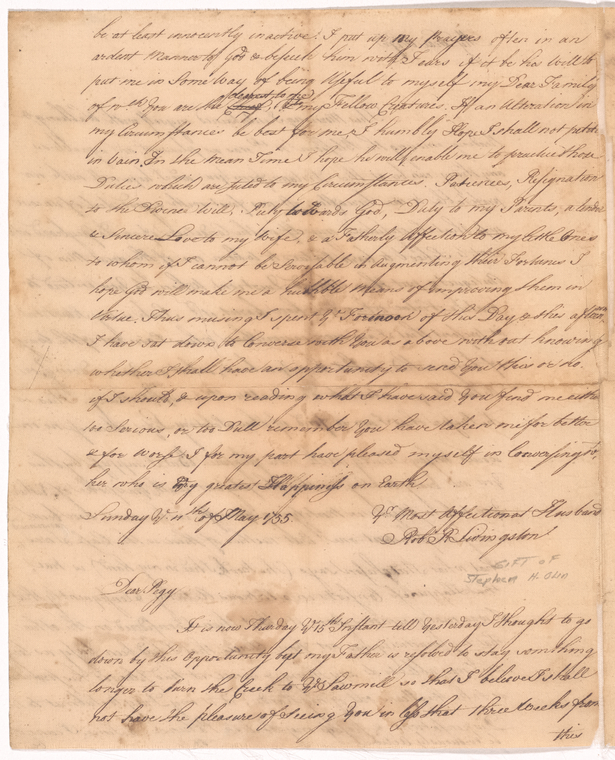 be at least innocently inactive: I put up my Prayers often in an
ardent Manner to God & beseech him with Tears if it be his Will to
put me in Some way of being Useful to myself my Dear Family
of wch. You are the dearest to me & my Fellow Creatures. If an Alteration in
my Circumstances be best for me, I humbly Hope I shall not petition
in vain. In the mean Time I hope he will enable me to practice those
Duties which are suted to my Circumstances. Patience, Resignation
to the Divine Will, Duty towards God, Duty to my Parents, a tender
& Sincere Love to my Wife, & a Fatherly Affection to my little Ones
to whom if I cannot be Serviceable in augmenting their Fortunes I
hope God will make me a humble Means of improving them in
Virtue. Thus musing I spent ye Forenoon of this Day & this afternoon
I have sat down to Converse with You as above with out knowing
whether I shall have an opportunity to send You this or no.
if I should, & upon reading what I have said You find me either
too Serious, or too Dull remember You have taken me for better
& for worse I for my part have pleased myself in Conversing to,
her who is my greatest Happiness on Earth
Sunday ye 11th of May 1755 Yr Most Affectionat Husband
Rob R Livingston
GIFT OF
Stephen H. Olin
Dear Pegy
It is now Thursday ye 15th Instant till Yesterday I thought to go
down by this Opportunity but my Father is resolved to stay something
longer to turn the Creek to ye Sawmill so that I believe I shall
not have the pleasure of seeing You in less that three Weeks from
this